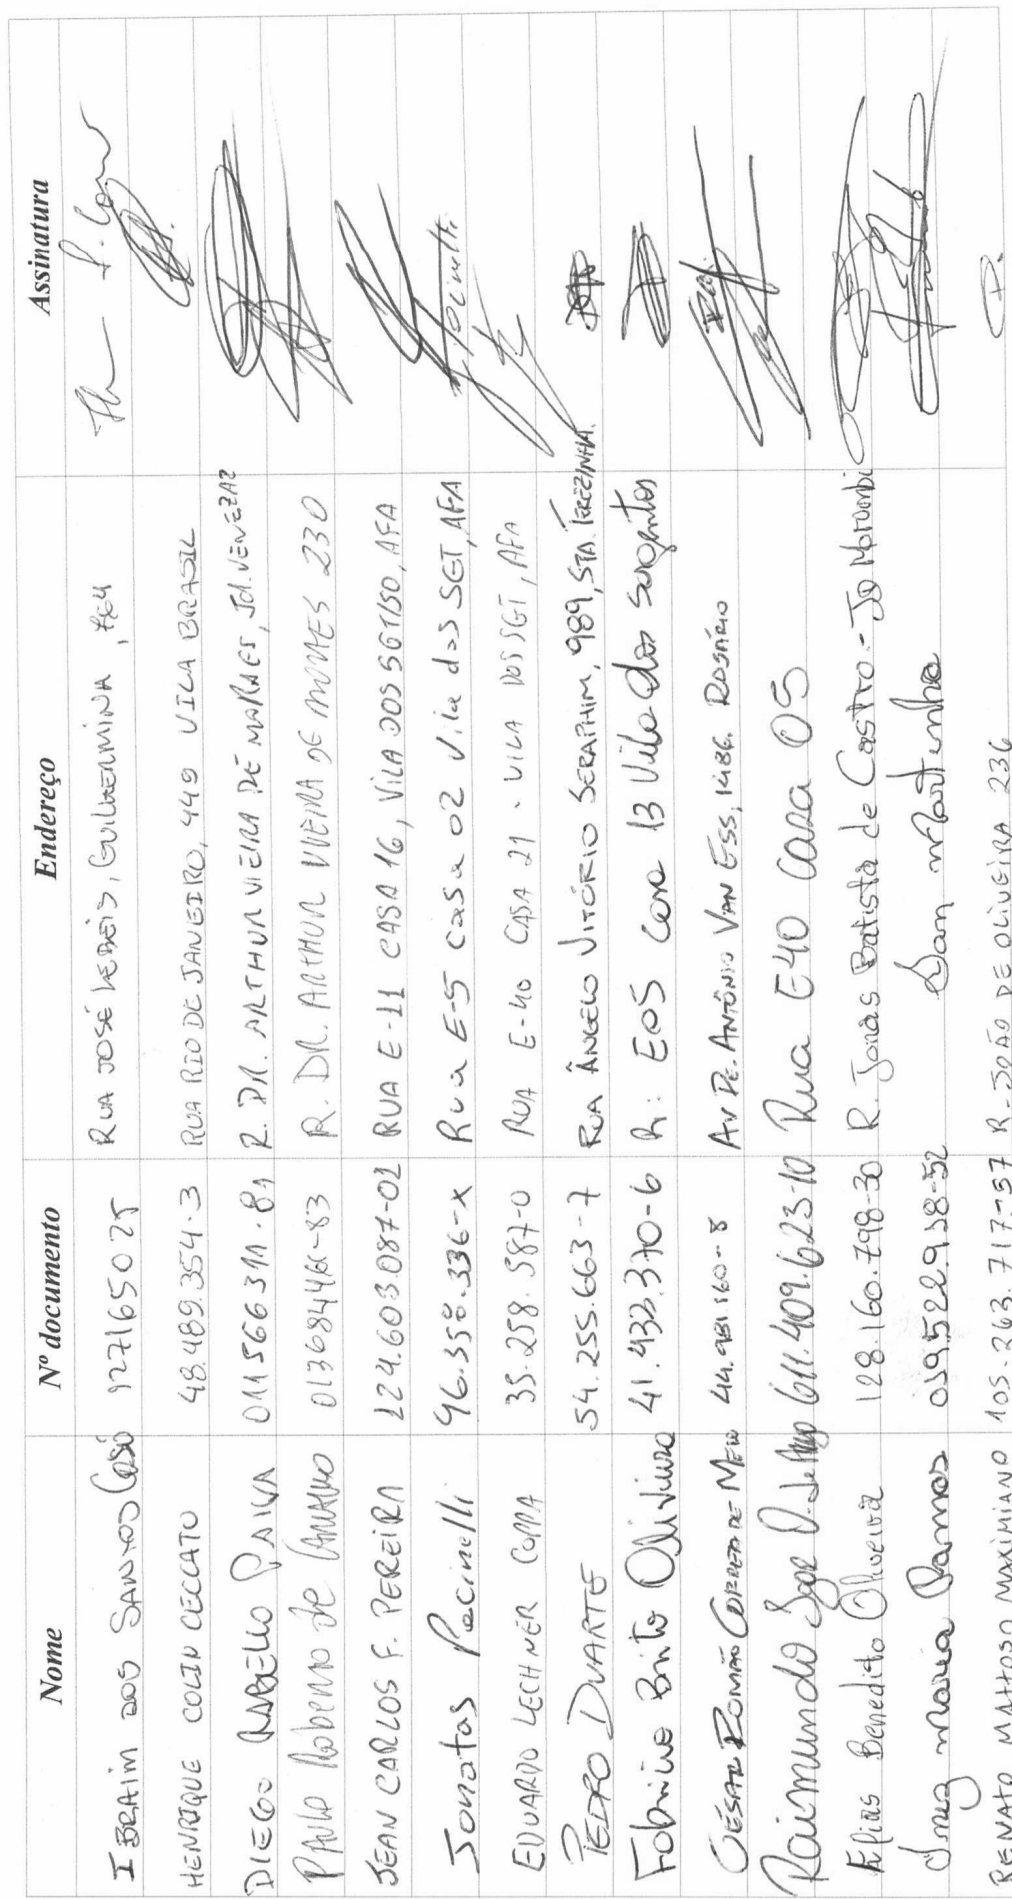 Nome Nº documento Endereço Assinatura
IBRAIM DOS SANTOS 127165025 RUA JOSÉ LEBEIS, GUILHERMINA,
HENRIQUE COLIN CECCATO 48.489.354-3 RUA RIO DE JANEIRO, 449 VILA BRASIL
DIEGO RABELLO PAIVA 011566311-81 R. DR. ARTHUR VIEIRA DE MORAES, Jd. VENEZA
PAULO Roberto de Carvalho R. DR. ARTHUR VIEIRA DE 230
JEAN CARLOS F. PEREIRA 224.603.087-02 RUA E-11 CASA 16, VILA DOS SGT/SO, AFA
Jonatas Pecinelli 46.358.336-X Rua E-5 casa 02 Vila dos SGT, AFA
EDUARDO LECHNER 35.258.587-0 RUA E-40 CASA 21 - VILA DOS SGT, AFA
PIEDRO DUARTE 54.255.663-7 RUA ÂNGELO VITÓRIO SERAPHIM, 989, STA. TEREZINHA.
Fabrício Brito Oliveira 41.433.370-6 R: E05 Casa 13 Vila dos Sargentos
CÉSAR ROMÃO CORREA DE MELO 44.981160-8 AV PE. ANTÔNIO VAN ESS, 1486. ROSÁRIO
Raimundo 611.409.623-10 Rua E40 casa 05
Elias Benedito Oliveira 128.160.798-30 R. Jonas Batista de Castro - Jd Morumbi
Inez maria Ramos 039522.938-52 San martinho
RENATO MATTOSO MAXIMIANO 105.263.717-57 R-JOÃO DE OLIVEIRA 236